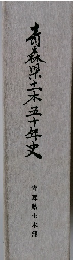 青森県土木五十年史
青森県土木部